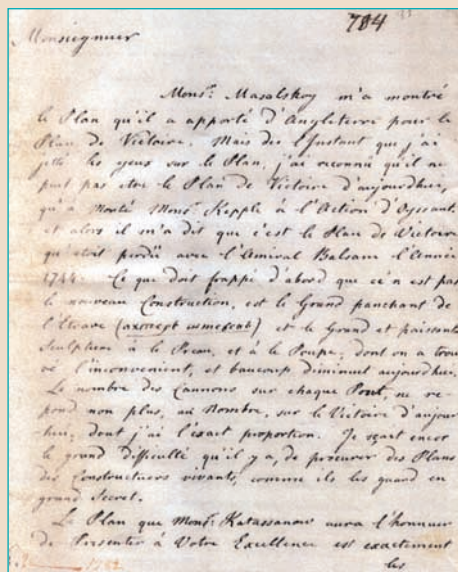 784
Monsiegnuer
Monsr. Masalskoy m'a montré
le Plan qu'il a apporté d'Angleterre pour le
Plan de Victoire. Mais des l'Instant que j'ai
jetté les yeux sur le Plan, j'ai reconnu qu'il ne
put pas etre le Plan de Victoire d'aujourdhui,
qu'a Monté Monsr. Kepple à l'Action d'Oyssant.
et alors il m'a dit que c'est le Plan de Victoire
qu etoit perdüe avec l'Amiral Balsam l'Année
1744. Ce que doit frappé d'abord que ce n'est pas
le nouveau Construction, est le Grand panchant de
l'Etrave et le Grand et paissante
Sculpture à le Proue, et à le Poupe; dont on a trou
ve l'inconvenient, et baucoup diminuet aujourdhui.
Le nombre des Cannons sur chaque Pont, ne re-
pond non plus, au Nombre, sur le Victoire d'aujour
dhui, dont j'ai l'exact proportion. Je sçait encor
le grand difficulté qu'il y a, de procurer des Plans
des Constructeurs vivants, comme ils les guard en
grand Secret.
Le Plan que Monsr. Katassanow aura l'honnuer
de Presenter à Votre Excellence est exactement
les